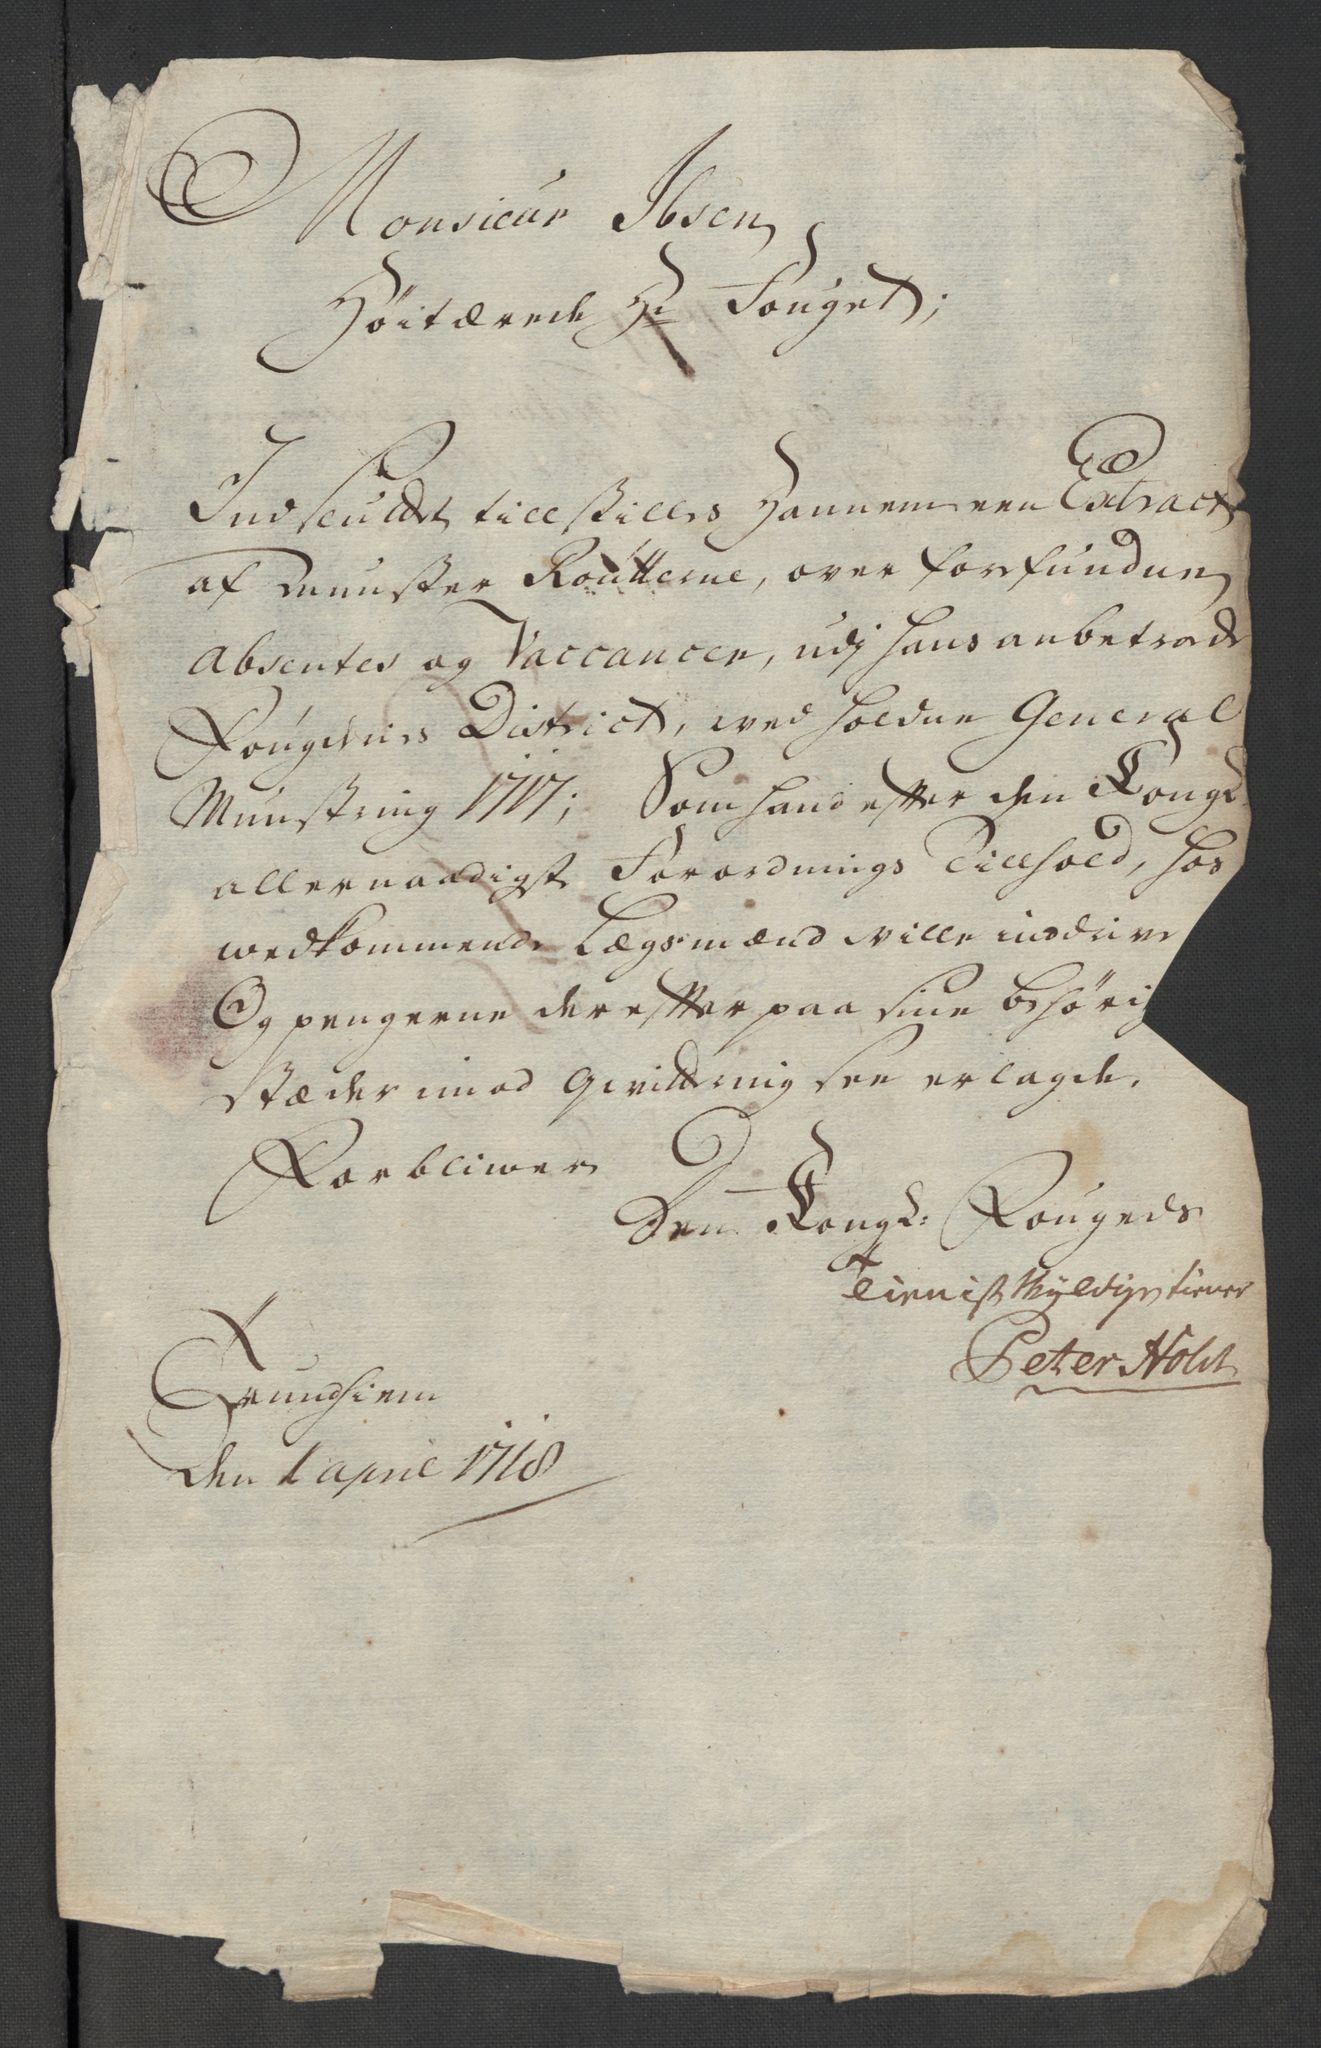 Monsieur Ibsen
Høitærede Hr Fouget;
Indsluldt tillstilles Hannem een Extract
af Munster Roullerne, over forfundne
Absentes og Vaccancer, udj hans anbetrode
Fougderies District, wed holdne General
Munstring 1717; Som hand effter den Kongl.
allernaadigste Forordnings Tillhold, hos
wedkommende Lægsmænd wille inddrive
Og pengerne dereffter paa sine behørig
stæder imod Qvittering see erlagde.
Forbliwer
Den Kongl: Fougeds
tienistskyldigste tiener
Peter Holst
Trundhiem
den 1 april 1718